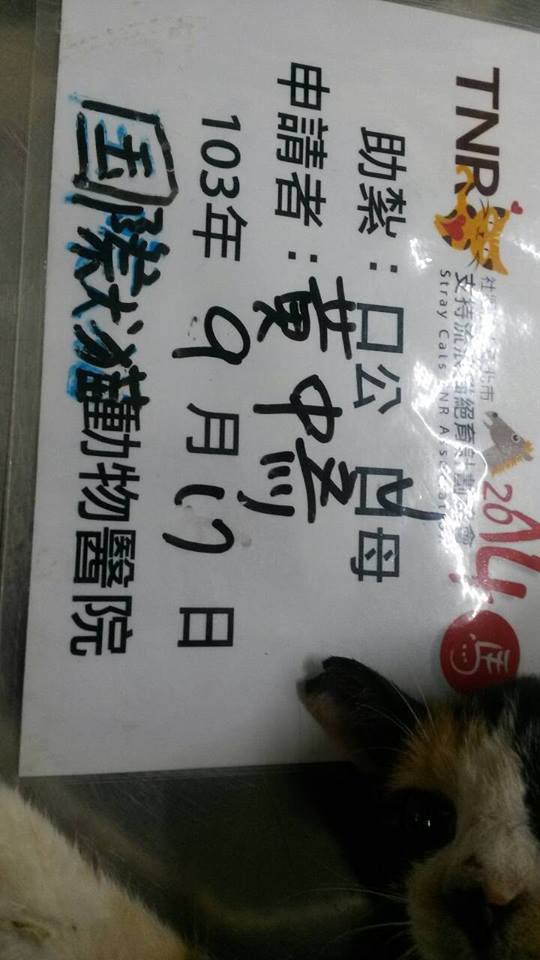 TNR 2014
台北市
支持流浪貓絕育計劃協會
Stray Cats TNR Association
助紮：□公 ☑母
申請者：黃中
103年 9月17日
国際犬猫動物醫院